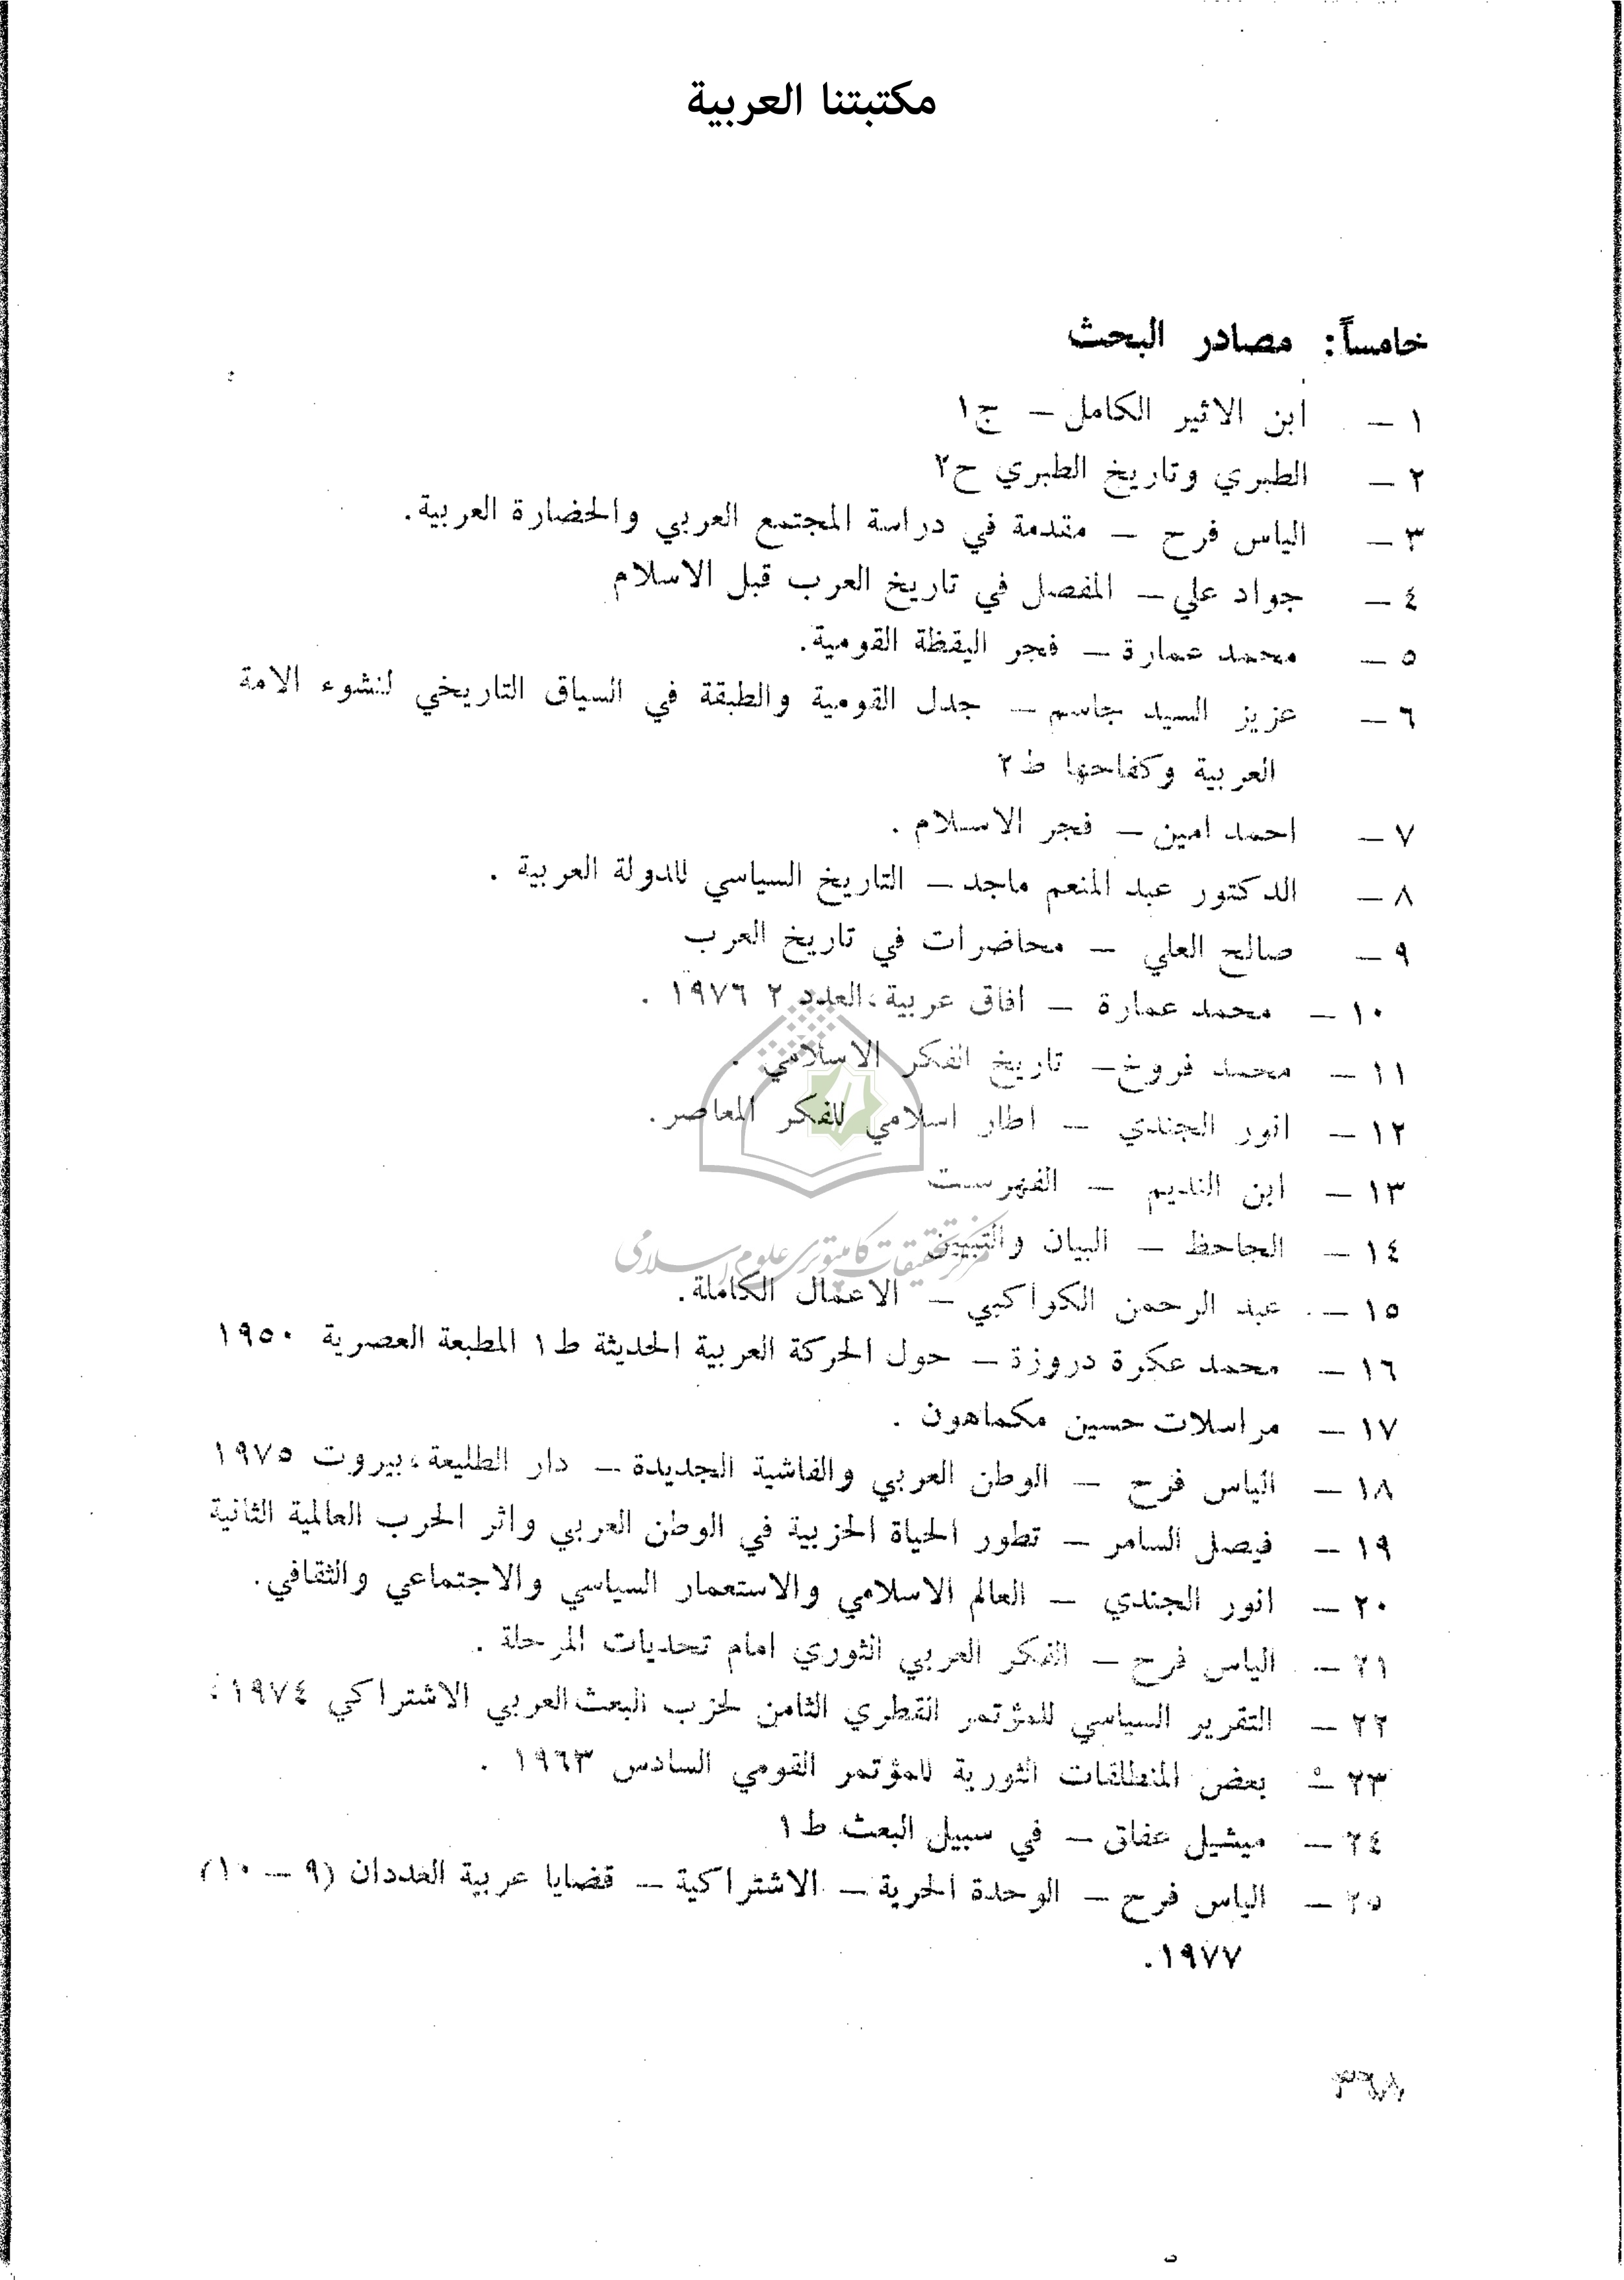 مكتبتنا العربية
خامساً: مصادر البحث
١ – ابن الاثير الكامل – ج١
٢ – الطبري وتاريخ الطبري ح٢
٣ – الياس فرح – مقدمة في دراسة المجتمع العربي والحضارة العربية.
٤ – جواد علي – المفصل في تاريخ العرب قبل الاسلام
٥ – محمد عمارة – فجر اليقظة القومية.
٦ – عزيز السيد جاسم – جدل القومية والطبقة في السياق التاريخي لنشوء الامة
العربية وكفاحها ط٢
٧ – احمد امين – فجر الاسلام .
٨ – الدكتور عبد المنعم ماجد – التاريخ السياسي للدولة العربية .
٩ – صالح العلي – محاضرات في تاريخ العرب
١٠ – محمد عمارة – افاق عربية، العدد ٢ ١٩٧٦ .
١١ – محمد فروخ – تاريخ الفكر الاسلامي .
١٢ – انور الجندي – اطار اسلامي للفكر المعاصر.
١٣ – ابن النديم – الفهرست
١٤ – الجاحظ – البيان والتبيين
مركز تحقيقات كامپيوترى علوم اسلامى
١٥ – عبد الرحمن الكواكبي – الاعمال الكاملة.
١٦ – محمد عكرة دروزة – حول الحركة العربية الحديثة ط١ المطبعة العصرية ١٩٥٠
١٧ – مراسلات حسين مكماهون .
١٨ – الياس فرح – الوطن العربي والفاشية الجديدة – دار الطليعة، بيروت ١٩٧٥
١٩ – فيصل السامر – تطور الحياة الحزبية في الوطن العربي واثر الحرب العالمية الثانية
٢٠ – انور الجندي – العالم الاسلامي والاستعمار السياسي والاجتماعي والثقافي.
٢١ – الياس فرح – الفكر العربي الثوري امام تحديات المرحلة .
٢٢ – التقرير السياسي للمؤتمر القطري الثامن لحزب البعث العربي الاشتراكي ١٩٧٤.
٢٣ – بعض المنطلقات الثورية للمؤتمر القومي السادس ١٩٦٣ .
٢٤ – ميشيل عفلق – في سبيل البعث ط١
٢٥ – الياس فرح – الوحدة الحرية – الاشتراكية – قضايا عربية العددان (٩ – ١٠)
١٩٧٧.
٣٦٨